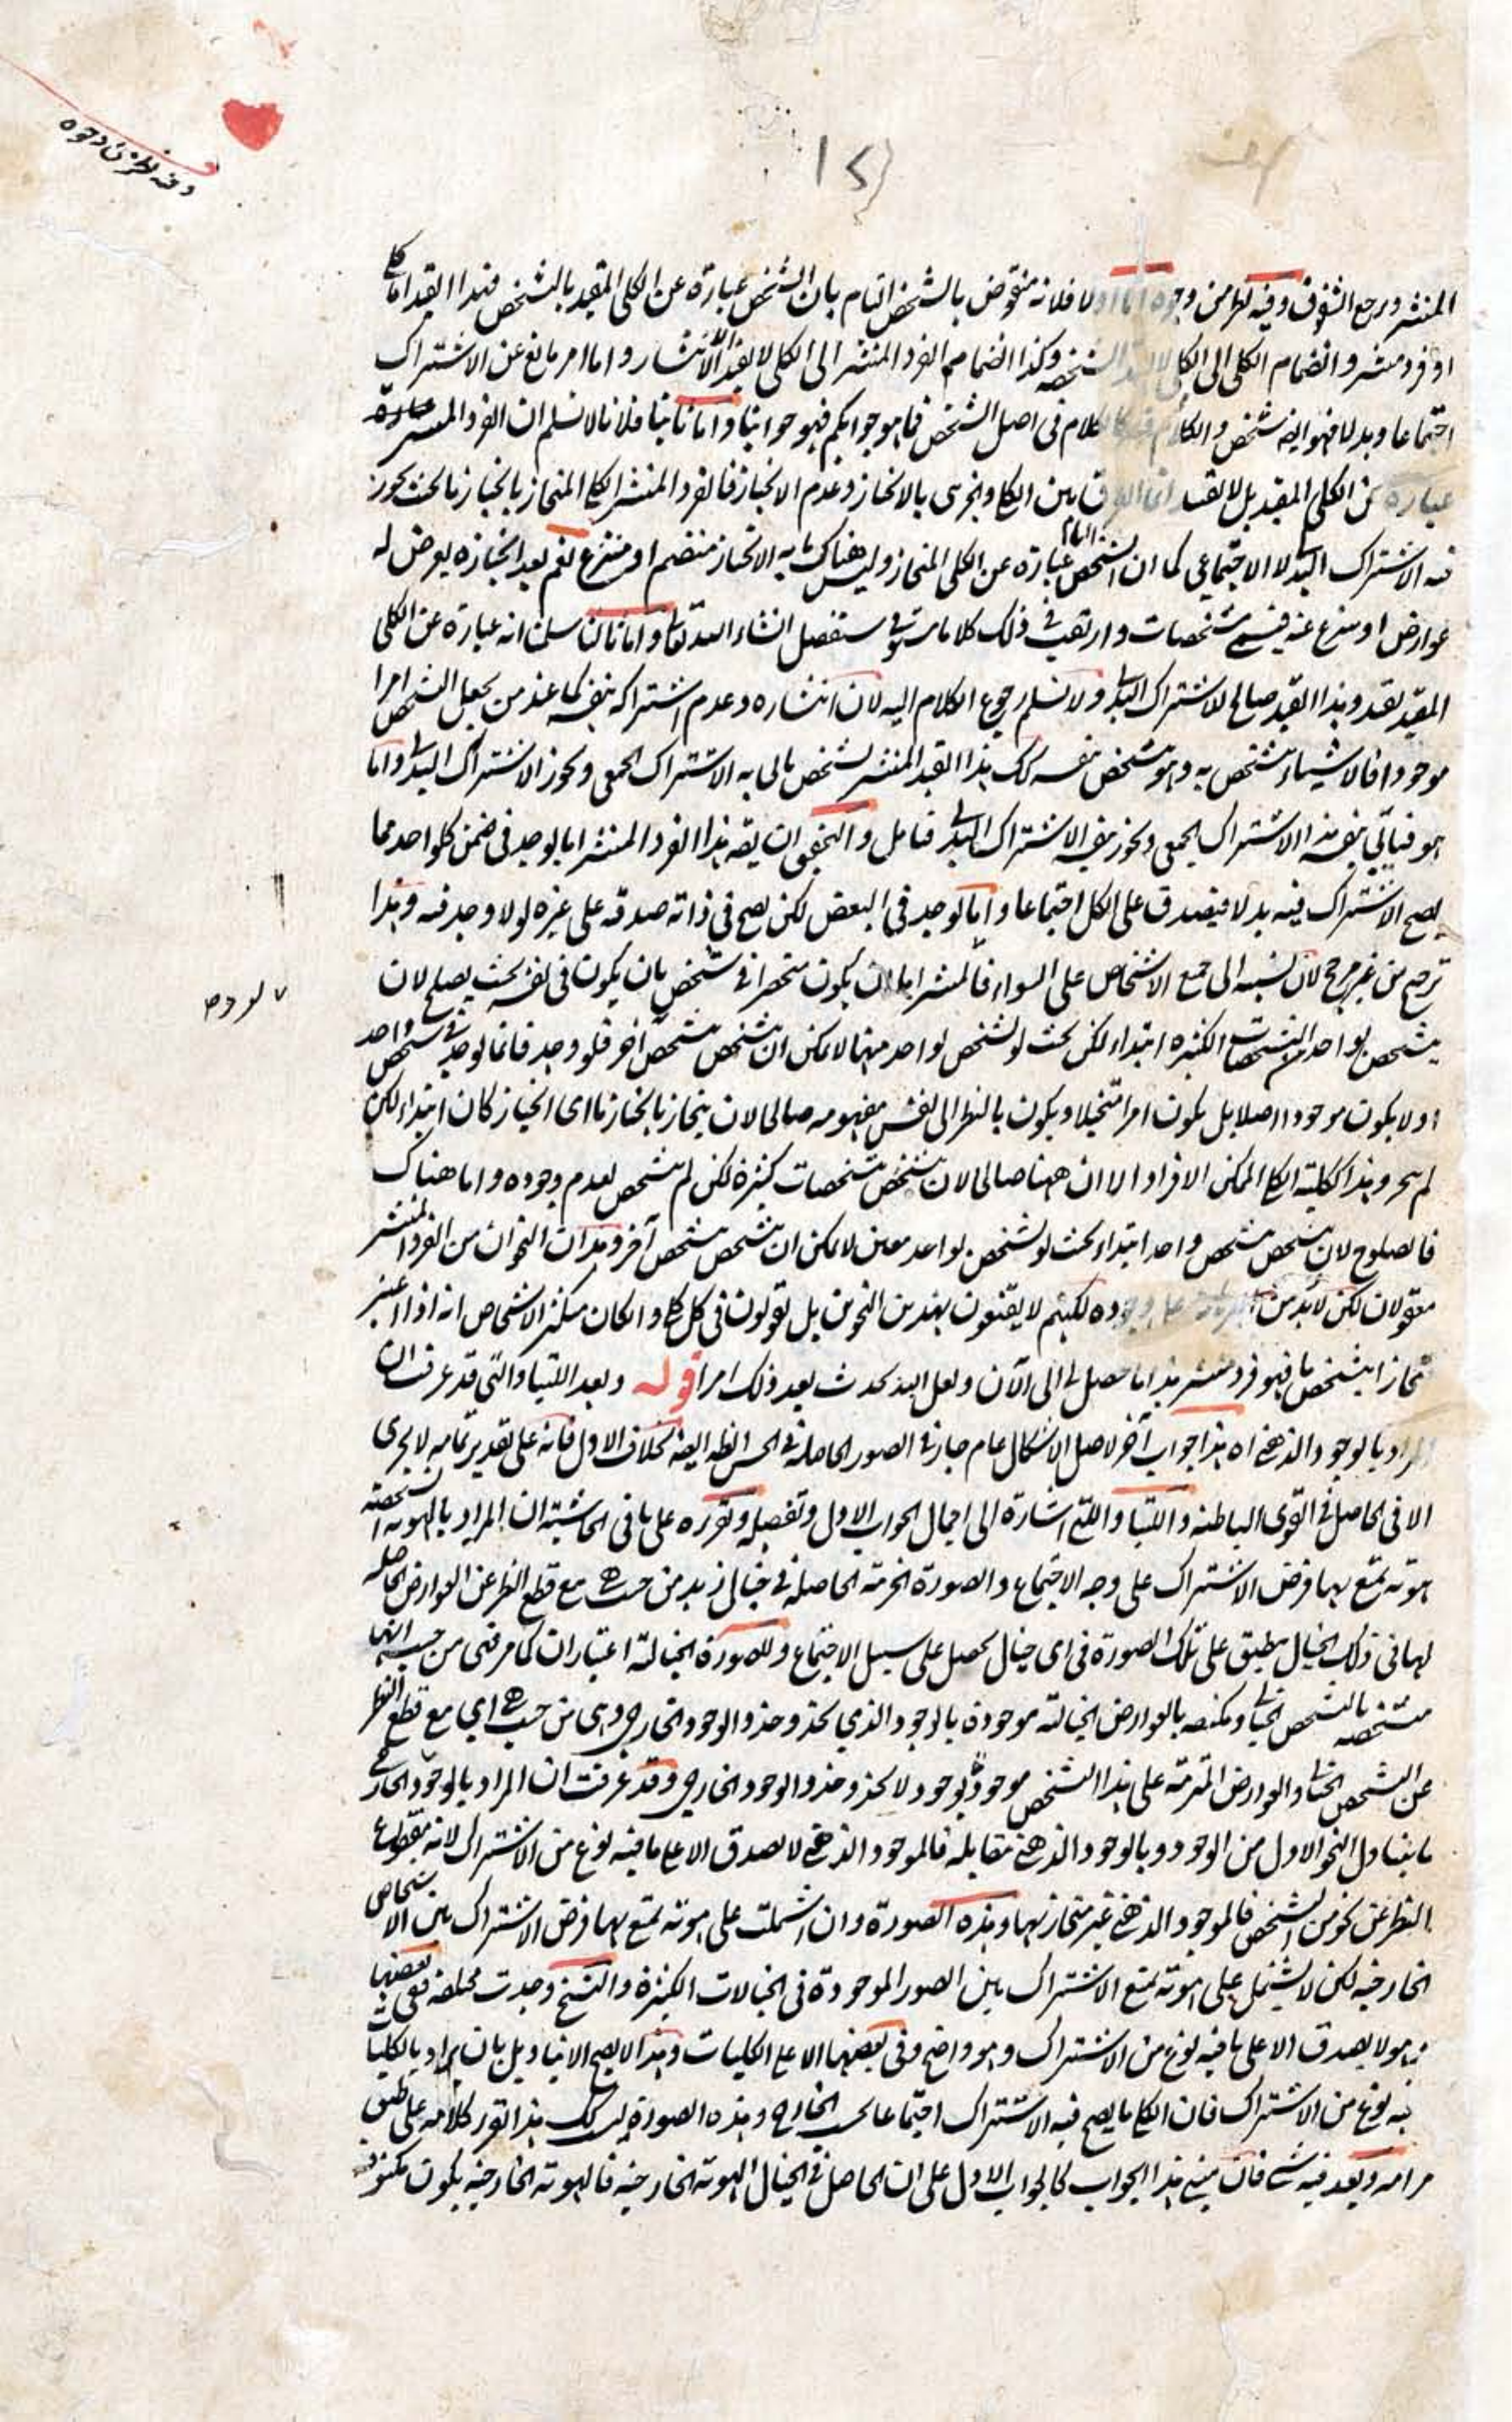 وفيه نظر من وجوه
المنتشر ويرجع الشقوق وفيه نظر من وجوه اما اولا فلانه منقوض بالشخص التام بان الشخص عبارة عن الكلى المقيد بالشخص فهذا القيد اما كلى
او فرد منتشر وانضمام الكلى الى الكلى لا الشخص وكذا انضمام الفرد المنتشر الى الكلى لا يفيد الا الانتشار واما امر مانع عن الاشتراك
اجتماعا وبدلا فهو ايضا شخص والكلام فيه كالكلام فى اصل الشخص فما هو جوابكم فهو جوابنا واما ثانيا فلانا لا نسلم ان الفرد المنتشر عبارة
عبارة عن الكلى المقيد بل لا انما الفرق بين الكلى والجزئى بالانحياز وعدم الانحياز فالفرد المنتشر الكلى المنحاز بانحياز ما بحيث يجوز
فيه الاشتراك البدلى لا الاجتماعى كما ان الشخص التام عبارة عن الكلى المنحاز وليس هناك ما به الانحياز منضم او منتزع نعم بعد انحيازه يعرض له
عوارض او ينتزع عنه فيسمى مشخصات وارتقب فى ذلك كلاما ستفصل انشاء الله تعالى واما ثالثا سلمنا انه عبارة عن الكلى
المقيد بقيد وهذا القيد صالح للاشتراك البدلى ولا نسلم رجوع الكلام اليه لان انتشاره وعدم اشتراكه بنفسه كما عند من يجعل الشخص امرا
موجودا فالاشياء متشخص به وهو متشخص بنفسه كك هذا القيد المنتشر تشخص يابى به الاشتراك الجمعى ويجوز الاشتراك البدلى واما
هو فيابى بنفسه الاشتراك الجمعى ويجوز بنفسه الاشتراك البدلى فتامل والتحقيق ان يقه هذا الفرد المنتشر اما يوجد فى ضمن كل واحد مما
يصح الاشتراك فيه بدلا فيصدق على الكل اجتماعا واما يوجد فى البعض لكن يصح فى ذاته صدقه على غيره لولا وجد فيه وهذا
ترجيح من غير مرجح لان نسبته الى جميع الاشخاص على السواء فالمنتشر اما ان يكون منحصرا فى شخص بان يكون فى نفسه بحيث يصلح لان
يتشخص بواحد من التشخصات الكثيرة ابتداء لكن بحيث لو تشخص بواحد منها لا يمكن ان يتشخص بتشخص آخر فلو وجد فانما يوجد فى شخص واحد
او لا يكون موجودا اصلا بل يكون امرا متخيلا ويكون بالنظر الى نفس مفهومه صالحا لان ينحاز بانحياز ما اى انحياز كان ابتداء لكن
لم وهذا ككلية الكلى الممكن الافراد الا ان ههنا صالحا لان يتشخص بتشخصات كثيرة لكن لم يتشخص لعدم وجوده واما هناك
فالصلوح لان يتشخص بتشخص واحد ابتداء بحيث لو تشخص بواحد معين لا يمكن ان يتشخص بتشخص آخر وهذان النحوان من الفرد المنتشر
معقولان لكن لا بد من على وجوده لكنهم لا يقنعون بهذين النحوين بل يقولون فى كل كلى وامكان متكثر الاشخاص انه اذا اعتبر
منحازا بتشخص ما فهو فرد منتشر هذا ما حصل لى الى الآن ولعل الله يحدث بعد ذلك امرا قوله وبعد اللتيا والتى قد عرفت ان
المراد بالوجود الذهنى اه هذا جواب آخر لاصل الاشكال عام جار فى الصور الحاصلة فى الحس الظاهر ايضا بخلاف الاول فانه على تقدير تمامه لا يجرى
الا فى الحاصل فى القوى الباطنة واللتيا والتى اشارة الى اجمال الجواب الاول وتفصيله وتقريره على ما فى الحاشية ان المراد بالهوية الشخصية
هوية يمتنع بها فرض الاشتراك على وجه الاجتماع والصورة الجزئية الحاصلة فى خيال زيد من حيث هى مع قطع النظر عن العوارض الحاصلة
لها فى ذلك الخيال ينطبق على تلك الصورة فى اى خيال يحصل على سبيل الاجتماع وللصورة الخيالية اعتباران كما مر فهى من حيث انها
متشخصة بالتشخص الخيالى ومكتنفة بالعوارض الخيالية موجودة بالوجود الذى يحذو حذو الوجود الخارجى وهى من حيث هى اى مع قطع النظر
عن التشخص الخيالى والعوارض المترتبة على هذا التشخص موجودة بوجود لا يحذو حذو الوجود الخارجى وقد عرفت ان المراد بالوجود الخارجى
ما يتناول النحو الاول من الوجود وبالوجود الذهنى مقابله فالموجود الذهنى لا يصدق الا على ما فيه نوع من الاشتراك لانه مقطوع
النظر عن نحو من التشخص فالموجود الذهنى غير منحاز بها وهذه الصورة وان اشتملت على هوية يمتنع بها فرض الاشتراك بين الاشخاص
الخارجية لكن لا يشتمل على هوية يمتنع الاشتراك بين الصور الموجودة فى الخيالات الكثيرة والنسخ وجدت مختلفة ففى بعضها
هو لا يصدق الا على ما فيه نوع من الاشتراك وهو واضح وفى بعضها الا على الكليات وهذا لا يصح الا بتاويل بان يراد بالكليات
فيه نوع من الاشتراك فان الكلى ما يصح فيه الاشتراك اجتماعا بحسب الخارج وهذه الصورة ليس كك هذا تقرير كلامه على طبق
مرامه وبعد فيه شئ فان مبنى هذا الجواب كالجواب الاول على ان الحاصل فى الخيال الهوية الخارجية فالهوية الخارجية يكون